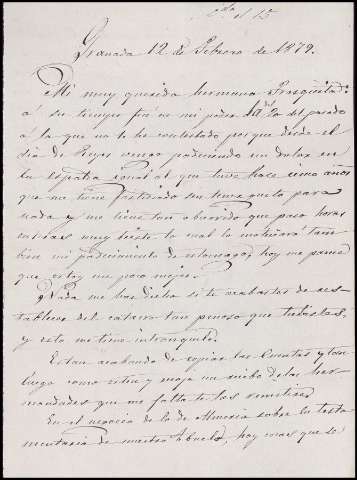 Granada 12 de Febrero de 1879.
Mi muy querida hermana Frasquita:
á su tiempo fué en mi poder la del 20 del pasado
á la que no te he contestado porque desde el
dia de Reyes vengo padeciendo un dolor en
la espalda igual al que tuve hace unos años
que me tiene fastidiado sin tener gusto para
nada y me tiene tan aburrido que paso horas
enteras muy triste lo cual lo motivará tam
bien mi padecimiento de estomago; hoy me parece
que estoy un poco mejor.
Nada me has dicho si te acabastes de res-
tablecer del catarro tan penoso que tubistes,
y esto me tiene intranquilo.
Estan acabando de copiar las cuentas y tan
luego como esten y recoja un recibo de las her
mandades que me falta te las remitiré.
En el negocio de la de Almeria sobre la testa
mentaria de nuestro Abuelo, hoy creo que se